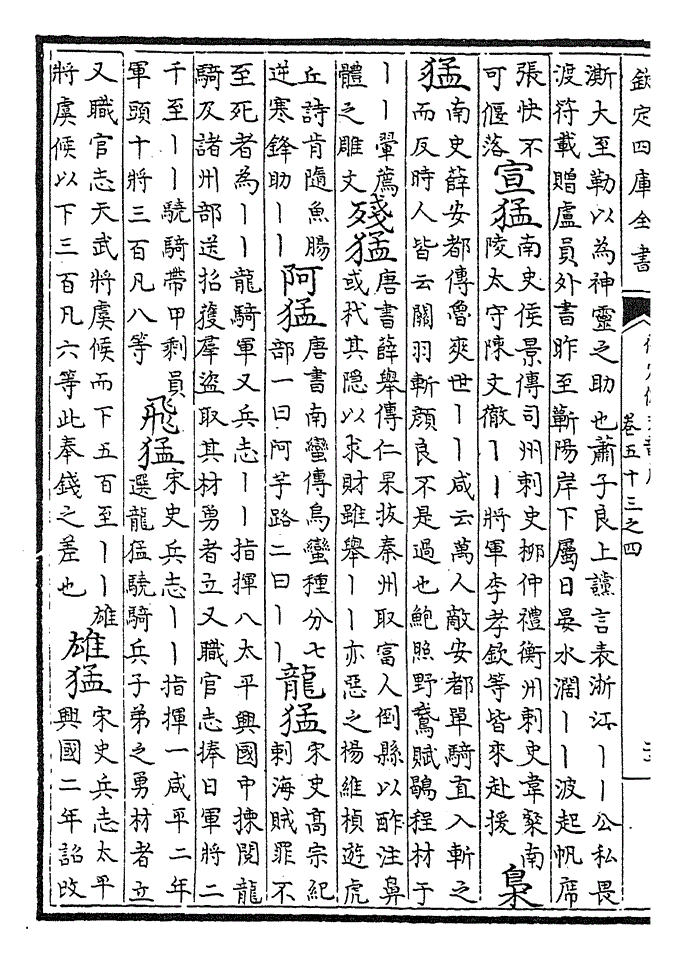 欽定四庫全書
卷五十三之四
澌大至勒以為神靈之助也蕭子良上讜言表浙江丨丨公私畏
渡符載贈盧員外書昨至蘄陽岸下屬日晏水濶丨丨波起帆席
張快不
可偃落
宣猛
南史侯景傳司州刺史柳仲禮衡州刺史韋粲南
陵太守陳文徹丨丨將軍李孝欽等皆來赴援
梟
猛
南史薛安都傳魯爽世丨丨咸云萬人敵安都單騎直入斬之
而反時人皆云關羽斬顔良不是過也鮑照野鵞賦鶡程材于
丨丨翬薦
體之雕文
殘猛
唐書薛舉傳仁杲拔秦州取富人倒縣以酢注鼻
或杙其隱以求財雖舉丨丨亦惡之楊維楨遊虎
丘詩肯隨魚腸
逆寒鋒助丨丨
阿猛
唐書南蠻傳烏蠻種分七
部一曰阿芋路二曰丨丨
龍猛
宋史高宗紀
刺海賊罪不
至死者為丨丨龍騎軍又兵志丨丨指揮八太平興國中揀閲龍
騎及諸州部送招獲羣盜取其材勇者立又職官志捧日軍將二
千至丨丨驍騎帶甲剩員
軍頭十將三百凡八等
飛猛
宋史兵志丨丨指揮一咸平二年
選龍猛驍騎兵子弟之勇材者立
又職官志天武將虞候而下五百至丨丨雄
將虞候以下三百凡六等此奉錢之差也
雄猛
宋史兵志太平
興國二年詔改